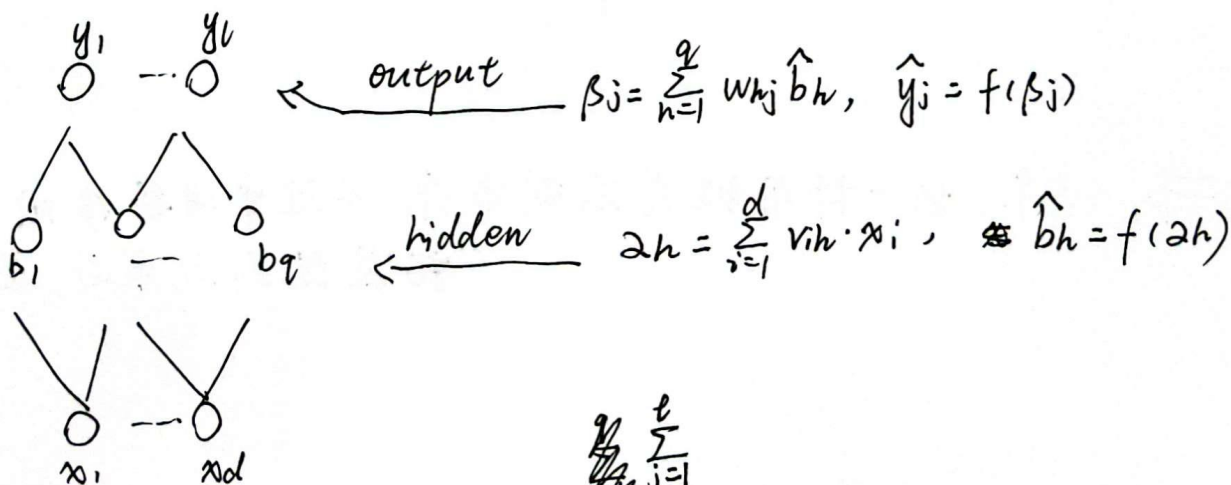 y₁ --- yₗ
output βj = Σ_{h=1}^{q} whj b̂h, ŷj = f(βj)
b₁ --- bq
hidden αh = Σ_{i=1}^{d} vih · xi , b̂h = f(αh)
x₁ --- xd
Σ_{j=1}^{l}